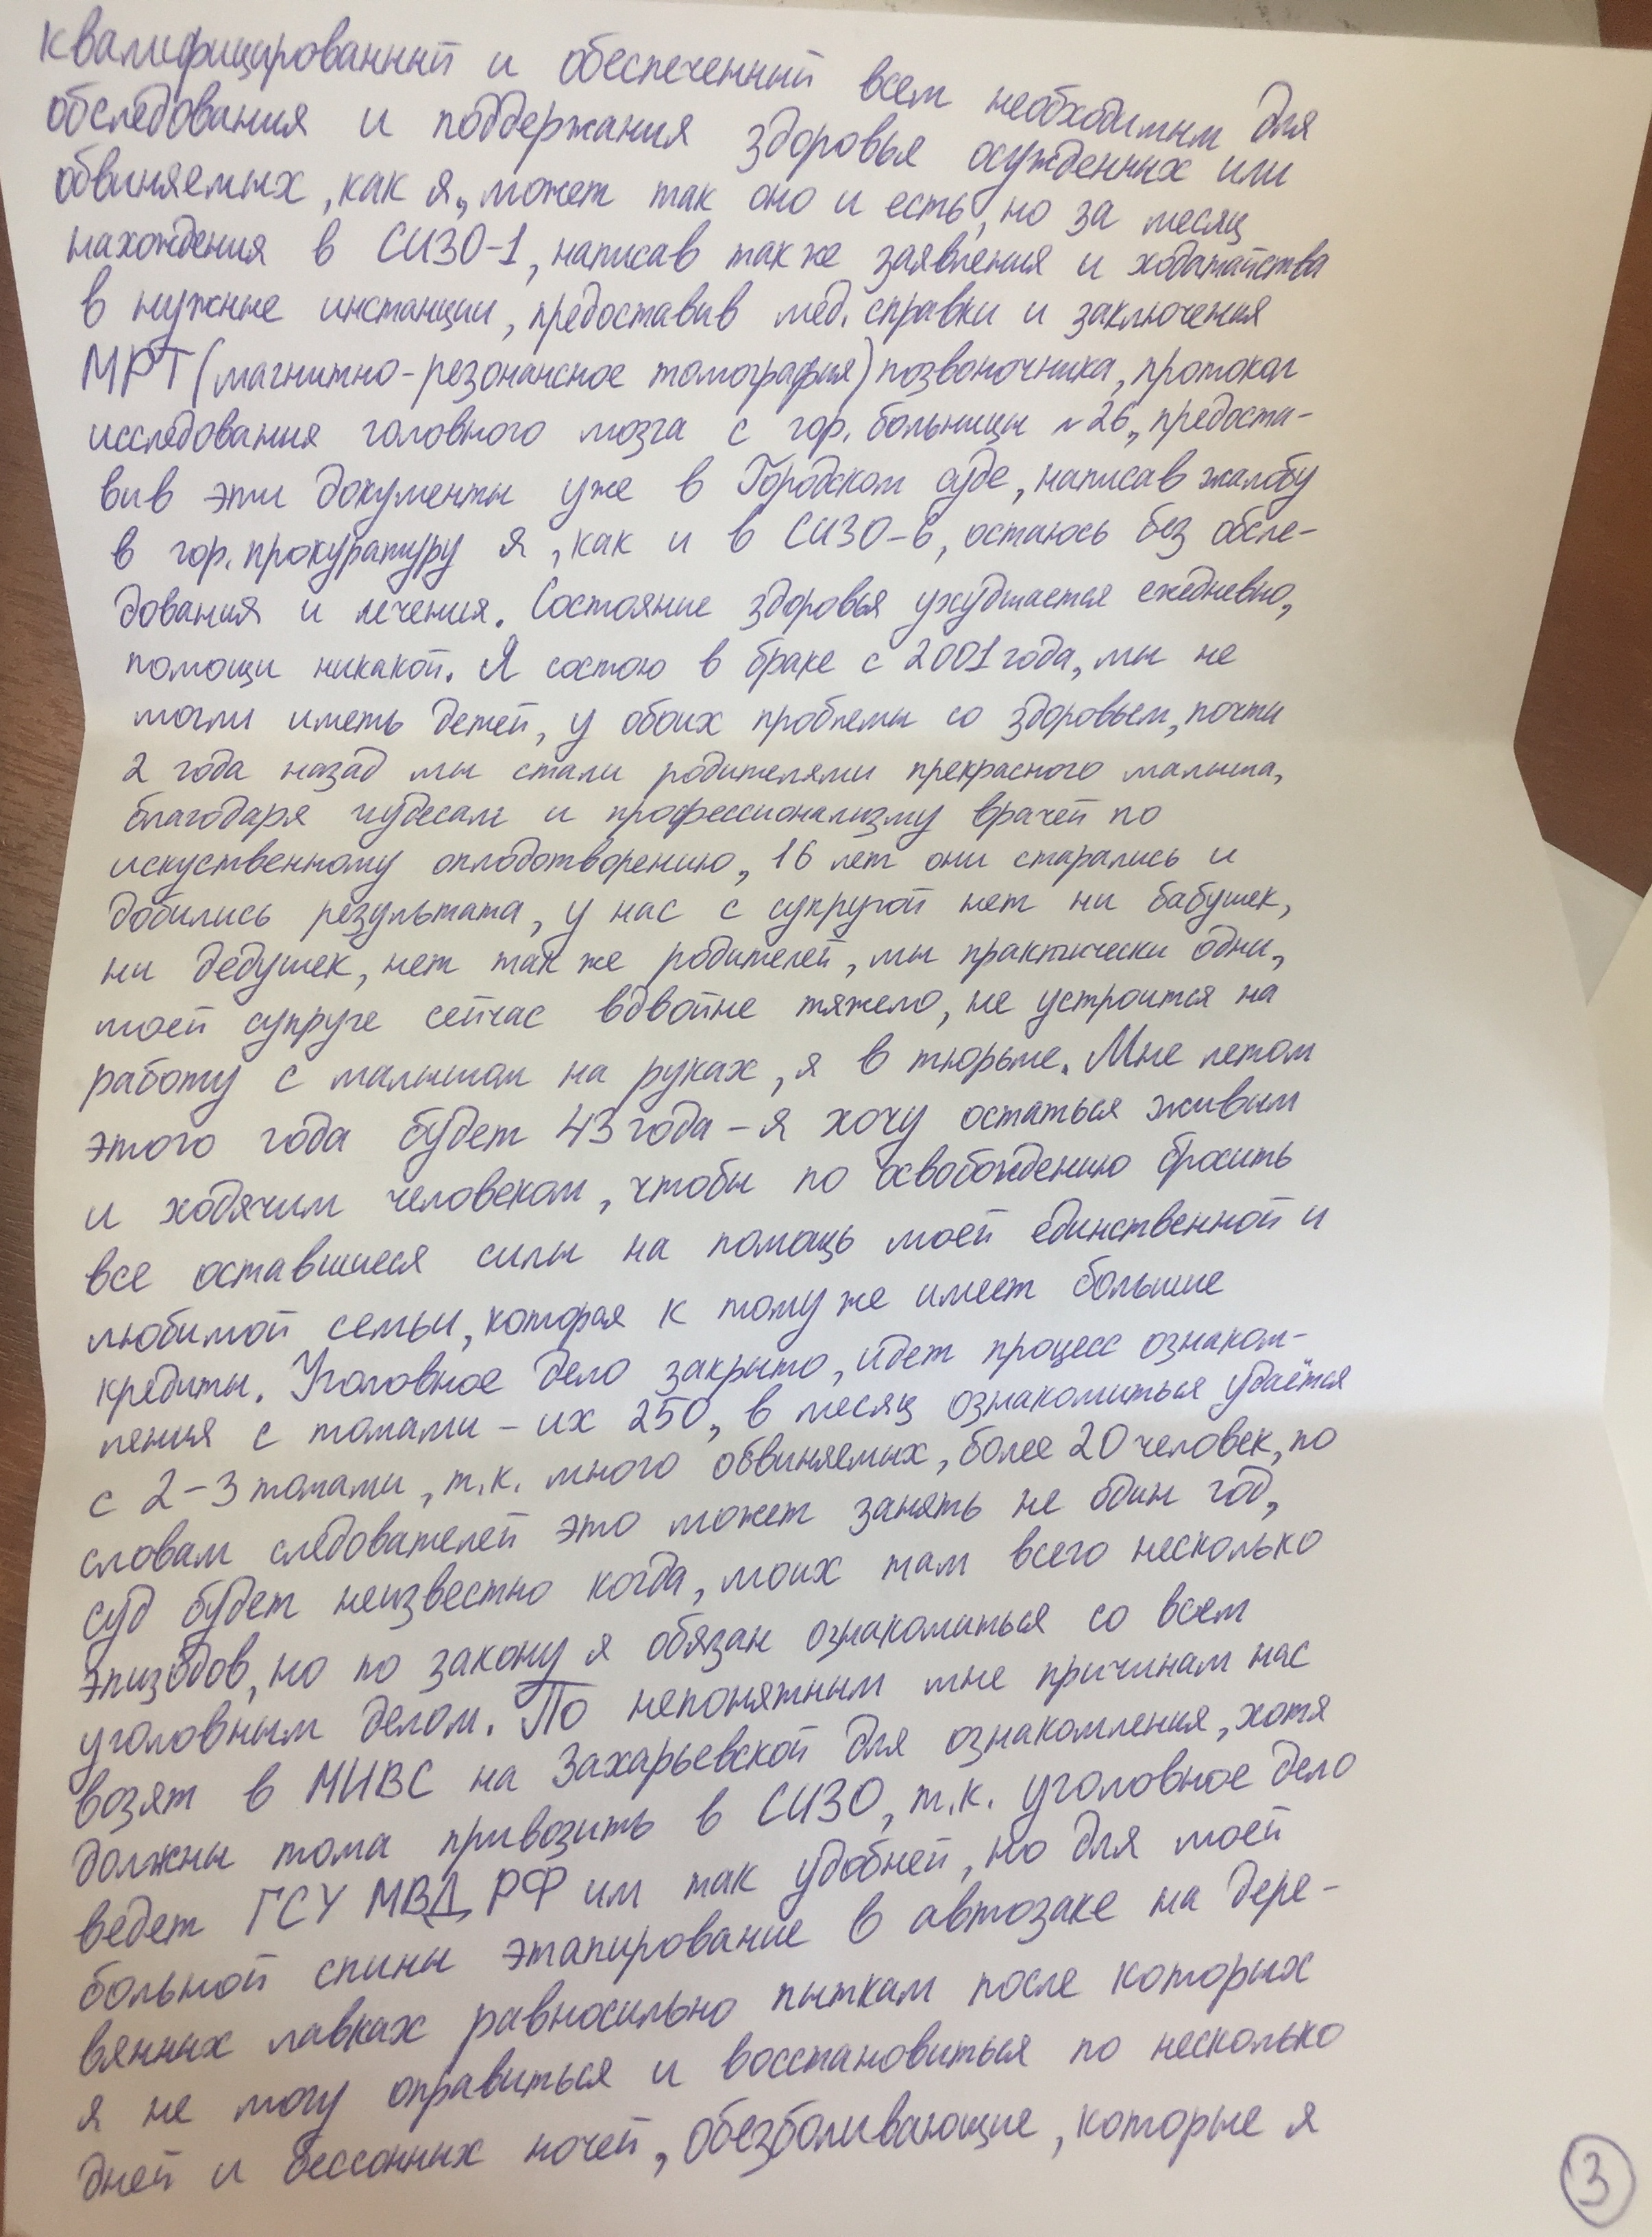 квалифицированный и обеспеченный всем необходимым для
обследования и поддержания здоровья осужденных или
обвиняемых, как я, может так оно и есть, но за месяц
нахождения в СИЗО-1, написав так же заявления и ходатайства
в нужные инстанции, предоставив мед. справки и заключения
МРТ (магнитно-резонансное томография) позвоночника, протокол
исследования головного мозга с гор. больницы №26, предоста-
вив эти документы уже в Городском суде, написав жалобу
в гор. прокуратуру я, как и в СИЗО-6, остаюсь без обсле-
дования и лечения. Состояние здоровья ухудшается ежедневно,
помощи никакой. Я состою в браке с 2001 года, мы не
могли иметь детей, у обоих проблемы со здоровьем, почти
2 года назад мы стали родителями прекрасного малыша,
благодаря чудесам и профессионализму врачей по
искуственному оплодотворению, 16 лет они старались и
добились результата, у нас с супругой нет ни бабушек,
ни дедушек, нет так же родителей, мы практически одни,
моей супруге сейчас вдвойне тяжело, не устроится на
работу с малышом на руках, я в тюрьме. Мне летом
этого года будет 43 года - я хочу остаться живым
и ходячим человеком, чтобы по освобождению бросить
все оставшиеся силы на помощь моей единственной и
любимой семьи, которая к тому же имеет большие
кредиты. Уголовное дело закрыто, идет процесс ознаком-
ления с томами - их 250, в месяц ознакомиться удаётся
с 2-3 томами, т.к. много обвиняемых, более 20 человек, по
словам следователей это может занять не один год,
суд будет неизвестно когда, моих там всего несколько
эпизодов, но по закону я обязан ознакомиться со всем
уголовным делом. По непонятным мне причинам нас
возят в МИВС на Захарьевской для ознакомления, хотя
должны тома привозить в СИЗО, т.к. уголовное дело
ведет ГСУ МВД РФ им так удобней, но для моей
больной спины этапирование в автозаке на дере-
вянных лавках равносильно пыткам после которых
я не могу оправиться и восстановиться по несколько
дней и бессонных ночей, обезболивающие, которые я
3